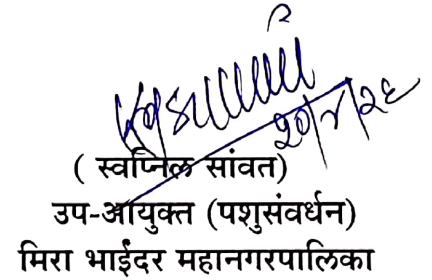 २०/४/२६
( स्वप्निल सांवत)
उप-आयुक्त (पशुसंवर्धन)
मिरा भाईंदर महानगरपालिका